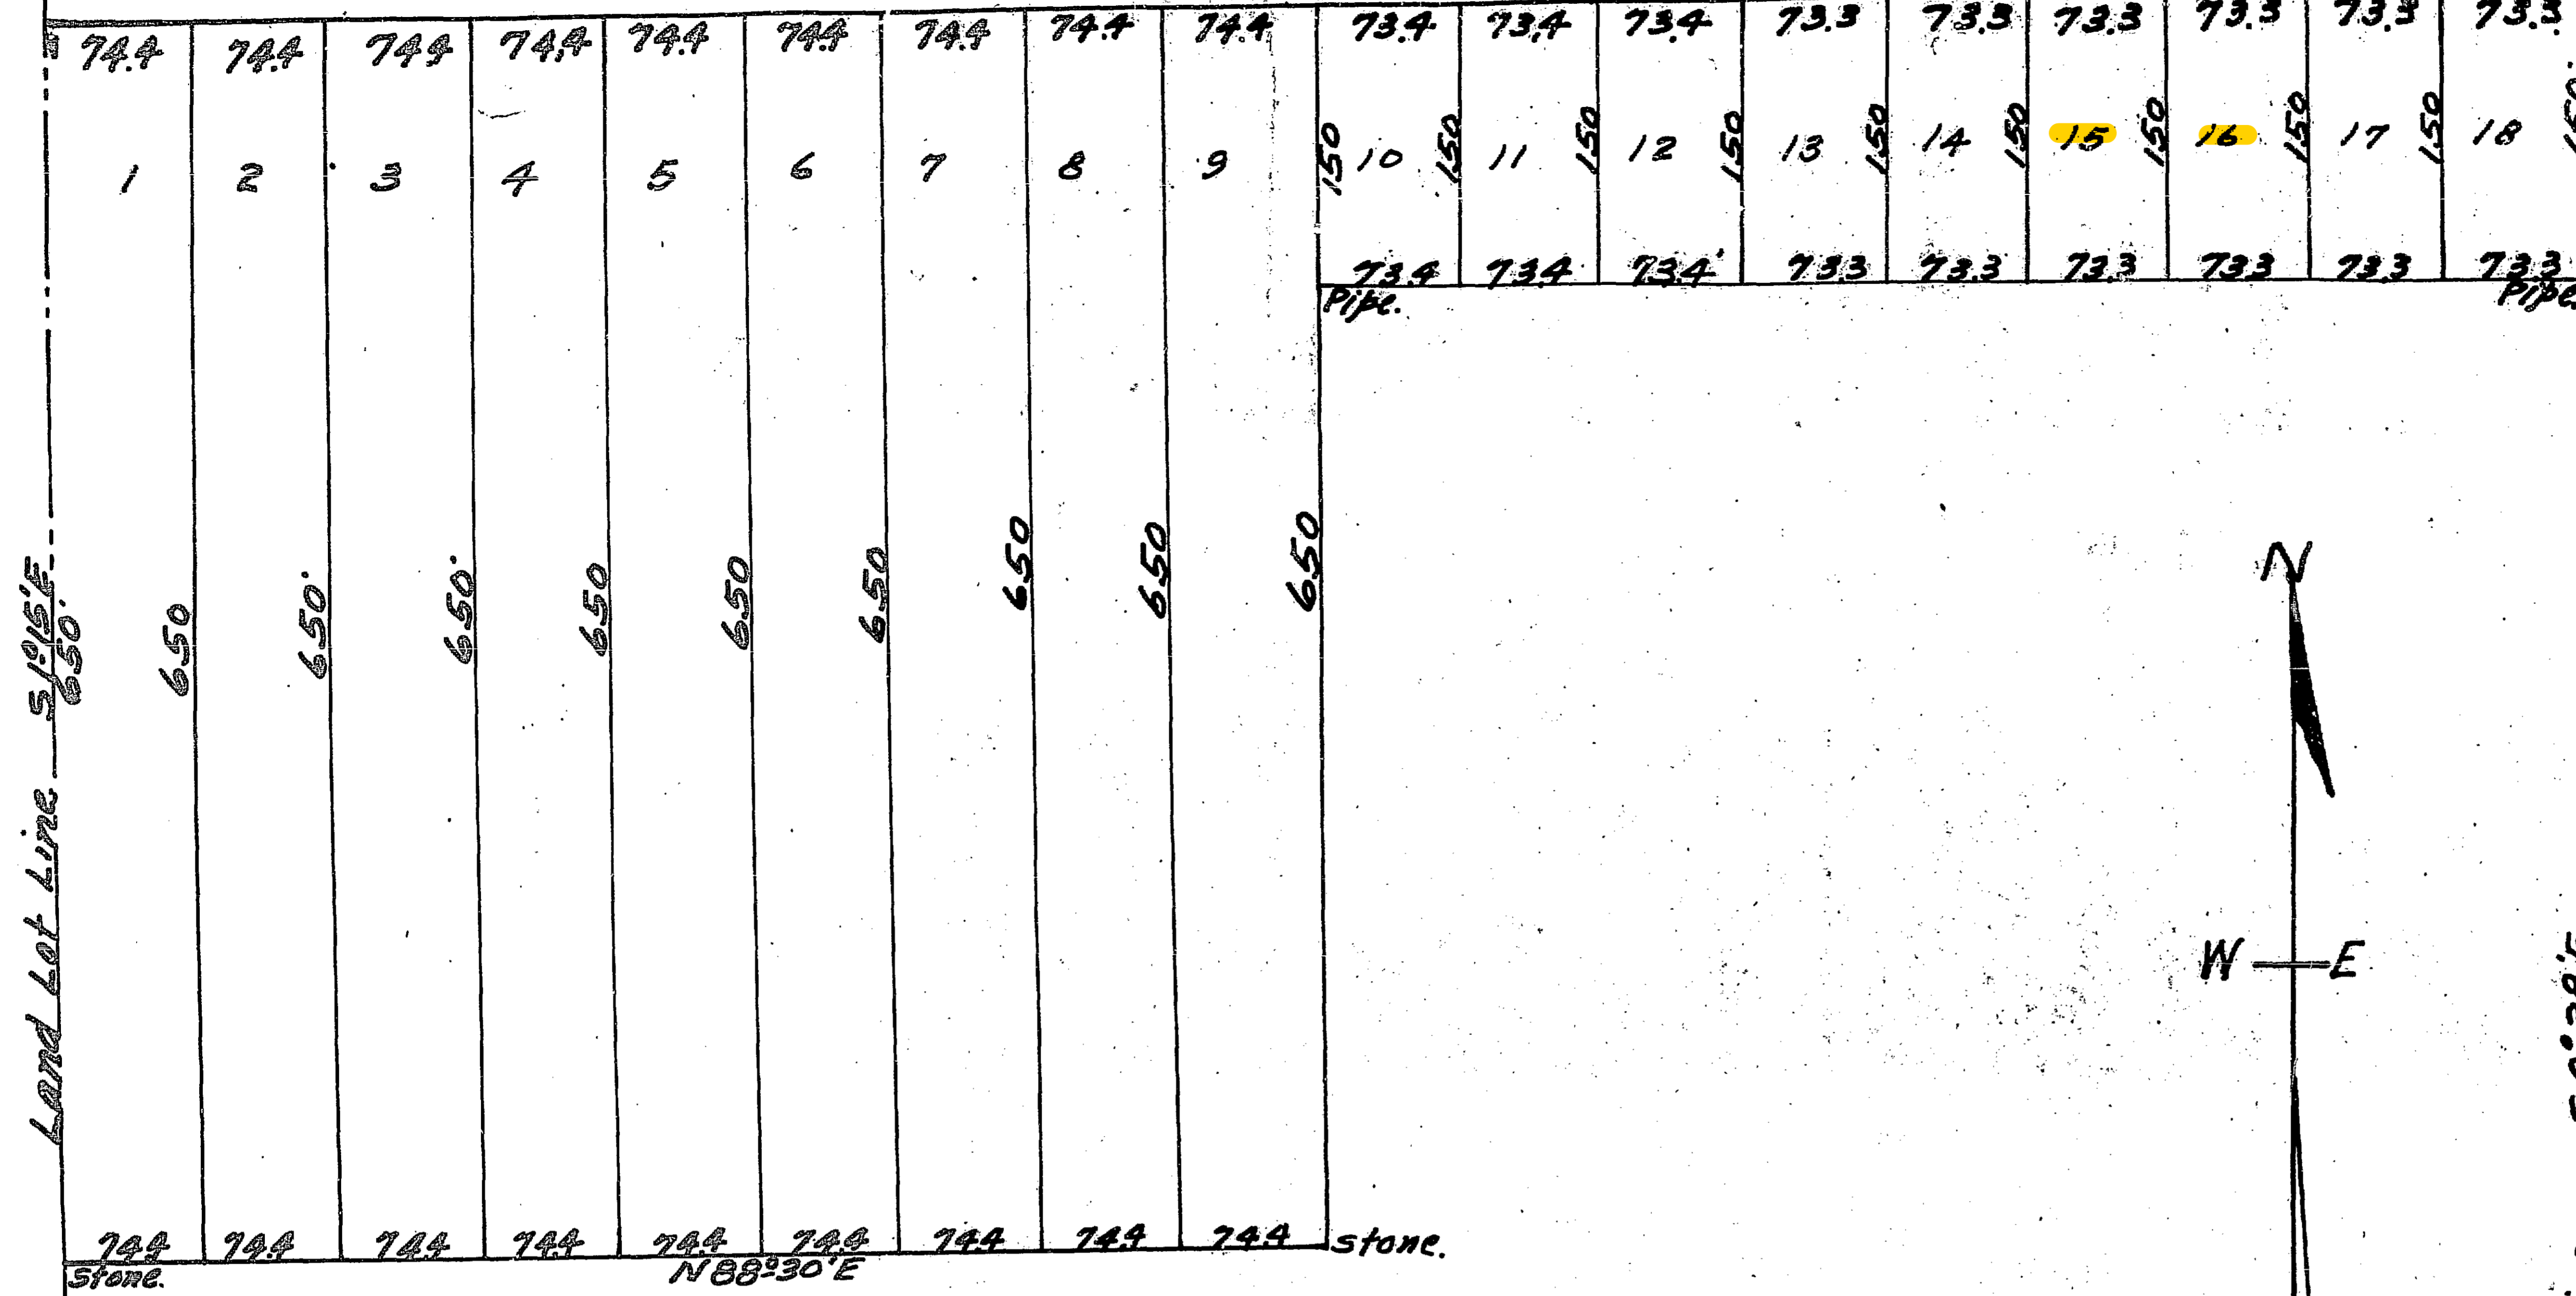 74.4 74.4 74.4 74.4 74.4 74.4 74.4 74.4 74.4 73.4 73.4 73.4 73.3 73.3 73.3 73.3 73.3 73.3
1 2 3 4 5 6 7 8 9 10 11 12 13 14 15 16 17 18
150 150 150 150 150 150 150 150 150 150
73.4 73.4 73.4 73.3 73.3 73.3 73.3 73.3 73.3
Pipe. Pipe
Land Lot Line S 1°15'E
650'
650 650' 650' 650 650 650 650 650 650
N
W E
74.4 74.4 74.4 74.4 74.4 74.4 74.4 74.4 74.4
Stone. stone.
N 88°30'E